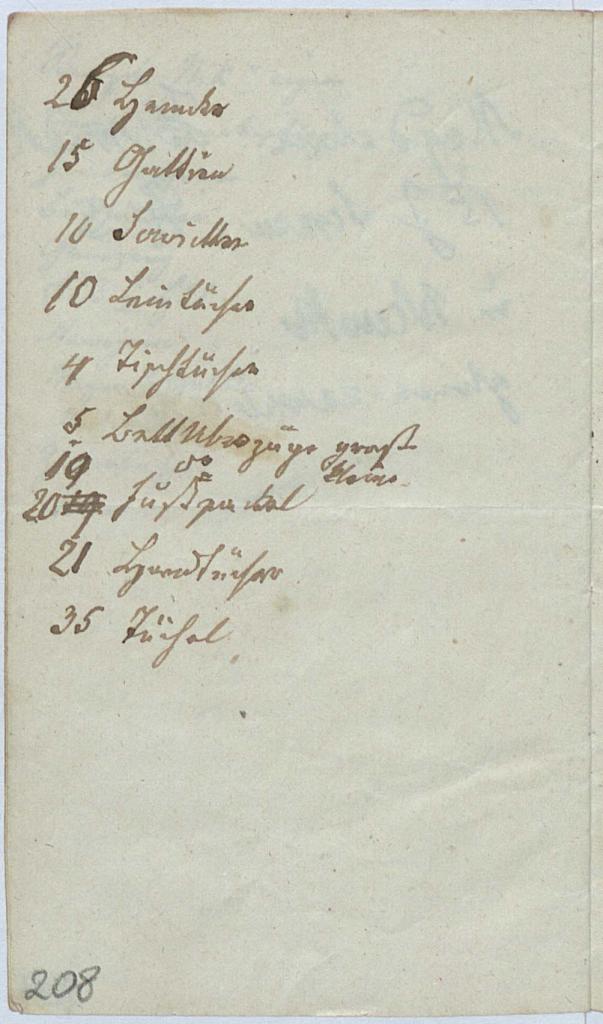 26 Hemder
15 Gattien
10 Servietten
10 Leintücher
4 Tischtücher
5 Bett Uberzüge groß
19 do kleine
20 Fußsockel
21 Handtücher
35 Tüchel
208